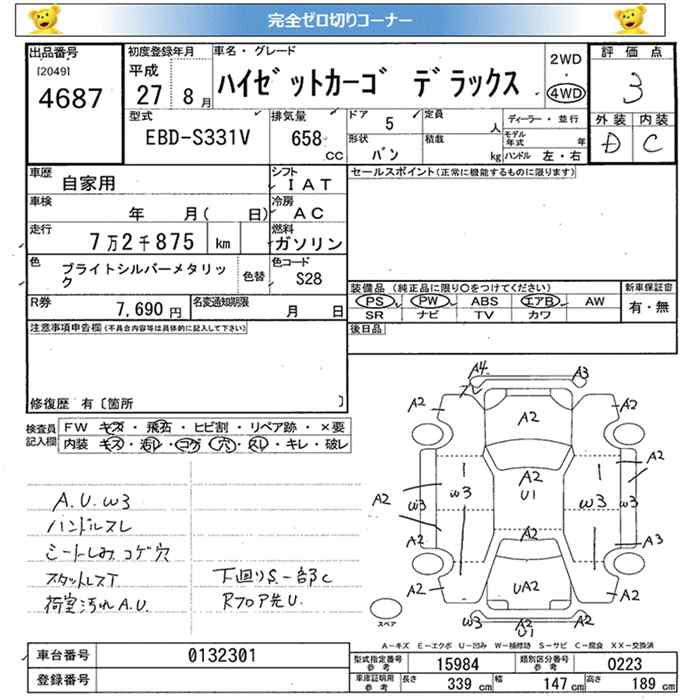 完全ゼロ切りコーナー
出品番号 初度登録年月 車名・グレード 2WD 評価点
[2049] 平成 ・
4687 27 8月 ハイゼットカーゴ デラックス 4WD 3
型式 排気量 ドア 5 定員 人 ディーラー・並行 外装 内装
EBD-S331V 658 CC 形状 バン 積載 kg モデル年式 年 D C
ハンドル 左・右
車歴 自家用 シフト IAT セールスポイント(正常に機能するものに限ります)
車検 年 月( 日) 冷房 AC
走行 7万2千875 km 燃料 ガソリン
色 ブライトシルバーメタリック 色替 色コード S28
装備品 (純正品に限り○をつけてください) 新車保証書
R券 7,690円 名変通知期限 月 日 PS PW ABS エアB AW 有・無
SR ナビ TV カワ
注意事項申告欄(不具合内容等は具体的に記入して下さい) 後日品
修復歴 有〔箇所 〕
検査員記入欄 FW キズ・飛石・ヒビ割・リペア跡・×要
内装 キズ・汚レ・コゲ・穴・スレ・キレ・破レ
A4 A3
A2 A2 A2
A2 W3 A2 U1 W3 W3 A2
W3
A2 A2 A3
A2 UA2 A2
W3 A2 W3
U1
スペア
A.U.W3
ハンドルスレ
シートしみ.コゲ穴
スタットレスT
荷室汚れA.U.
下廻りS.一部C
Rフロア先U.
A-キズ E-エクボ U-凹み W-補修跡 S-サビ C-腐食 XX-交換済
車台番号 0132301 型式指定番号 参考 15984 類別区分番号 参考 0223
登録番号 車庫証明用 参考 長さ 339cm 幅 147cm 高さ 189cm